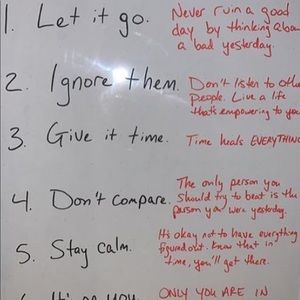 1. Let it go.
Never ruin a good
day by thinking about
a bad yesterday.
2. Ignore them.
Don't listen to other
people. Live a life
that's empowering to you
3. Give it time.
Time heals EVERYTHING
4. Don't compare.
The only person you
should try to beat is the
person you were yesterday.
5. Stay calm.
It's okay not to have everything
figured out. Know that in
time, you'll get there.
It's on you
ONLY YOU ARE IN